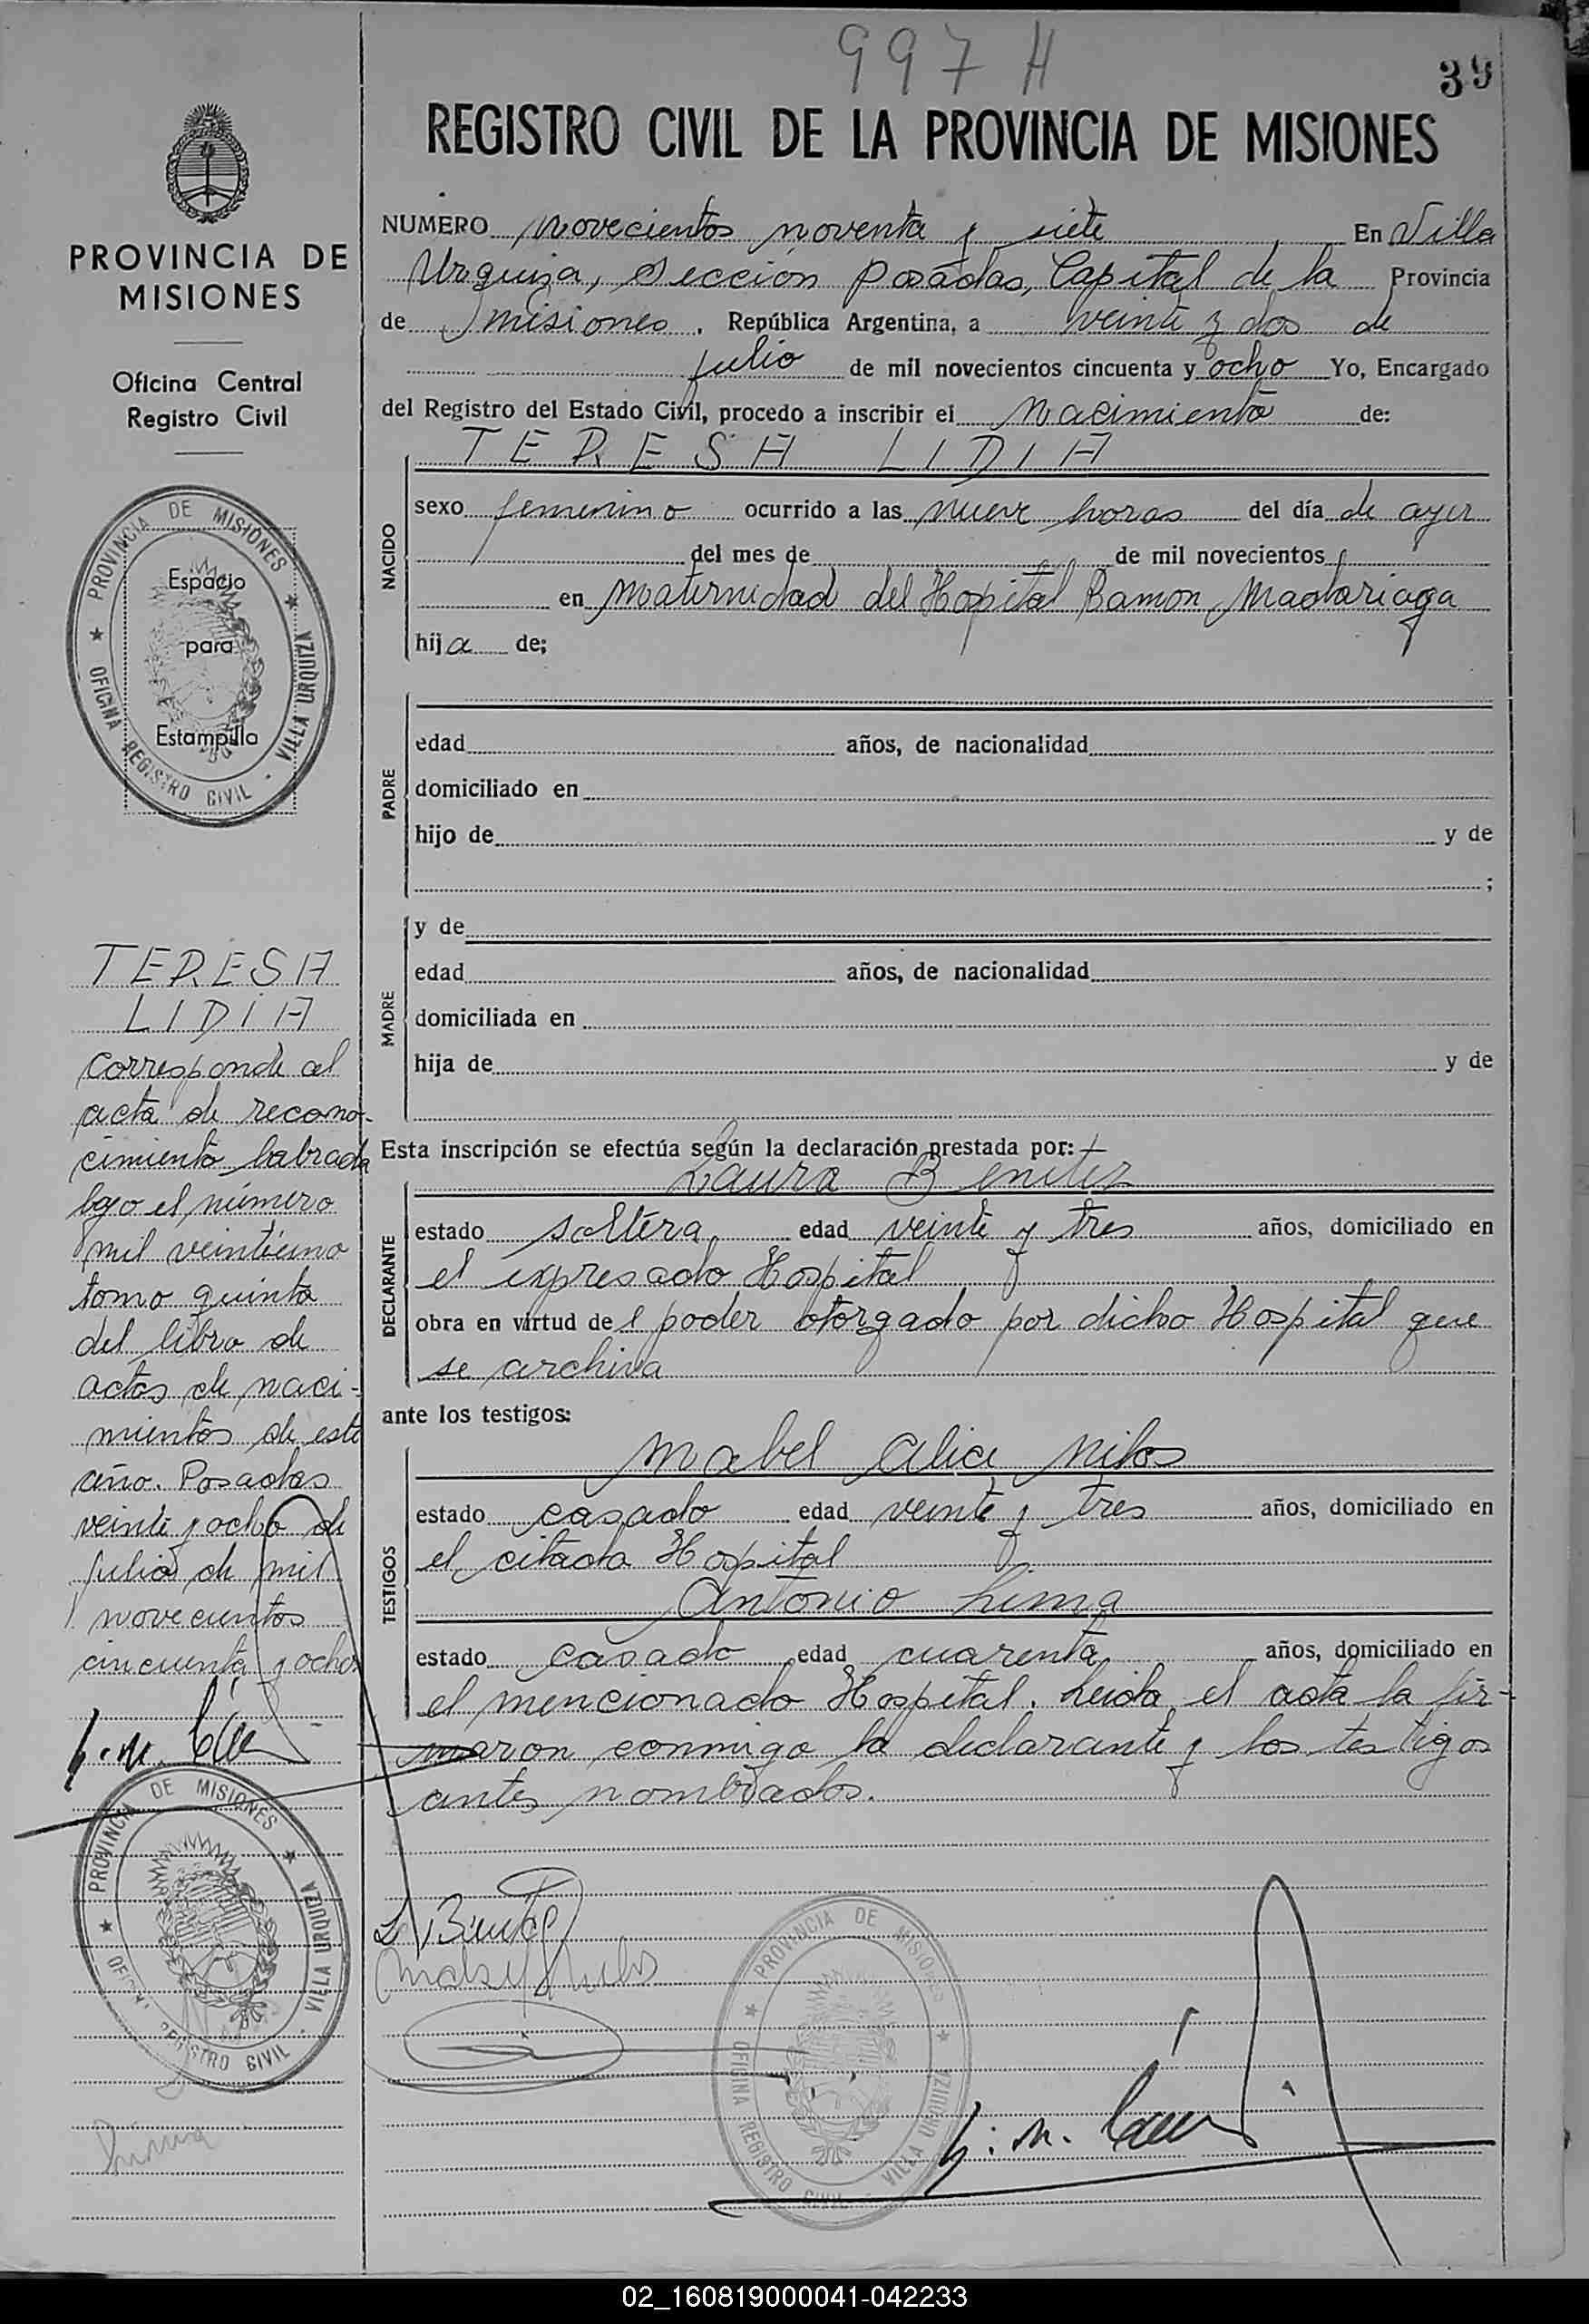 997 H
39
REGISTRO CIVIL DE LA PROVINCIA DE MISIONES
PROVINCIA DE
MISIONES
Oficina Central
Registro Civil
PROVINCIA DE MISIONES
OFICINA REGISTRO CIVIL - VILLA URQUIZA
Espacio
para
Estampilla
TERESA
LIDIA
Corresponde al
acta de recono-
cimiento labrada
bajo el número
mil veintiuno
tomo quinto
del libro de
actas de naci-
mientos de este
año. Posadas
veinte y ocho de
julio de mil
novecientos
cincuenta y ocho
PROVINCIA DE MISIONES
OFICINA REGISTRO CIVIL - VILLA URQUIZA
Lima
NUMERO novecientos noventa y siete, En Villa
Urquiza, Sección Posadas, Capital de la Provincia
de Misiones, República Argentina, a veinte y dos de
julio de mil novecientos cincuenta y ocho Yo, Encargado
del Registro del Estado Civil, procedo a inscribir el Nacimiento de:
TERESA LIDIA
NACIDO
sexo femenino ocurrido a las nueve horas del día de ayer
del mes de de mil novecientos
en Maternidad del Hospital Ramon Madariaga
hija de;
PADRE
edad años, de nacionalidad
domiciliado en
hijo de y de
;
MADRE
y de
edad años, de nacionalidad
domiciliada en
hija de y de
Esta inscripción se efectúa según la declaración prestada por:
Laura Benitez
DECLARANTE
estado soltera edad veinte y tres años, domiciliado en
el expresado Hospital
obra en virtud de l poder otorgado por dicho Hospital que
se archiva
ante los testigos:
Mabel Alice Nilos
TESTIGOS
estado casado edad veinte y tres años, domiciliado en
el citado Hospital
Antonio Lima
estado casado edad cuarenta años, domiciliado en
el mencionado Hospital. Leida el acta la fir-
maron conmigo la declarante y los testigos
antes nombrados.
PROVINCIA DE MISIONES
OFICINA REGISTRO CIVIL - VILLA URQUIZA
02_160819000041-042233